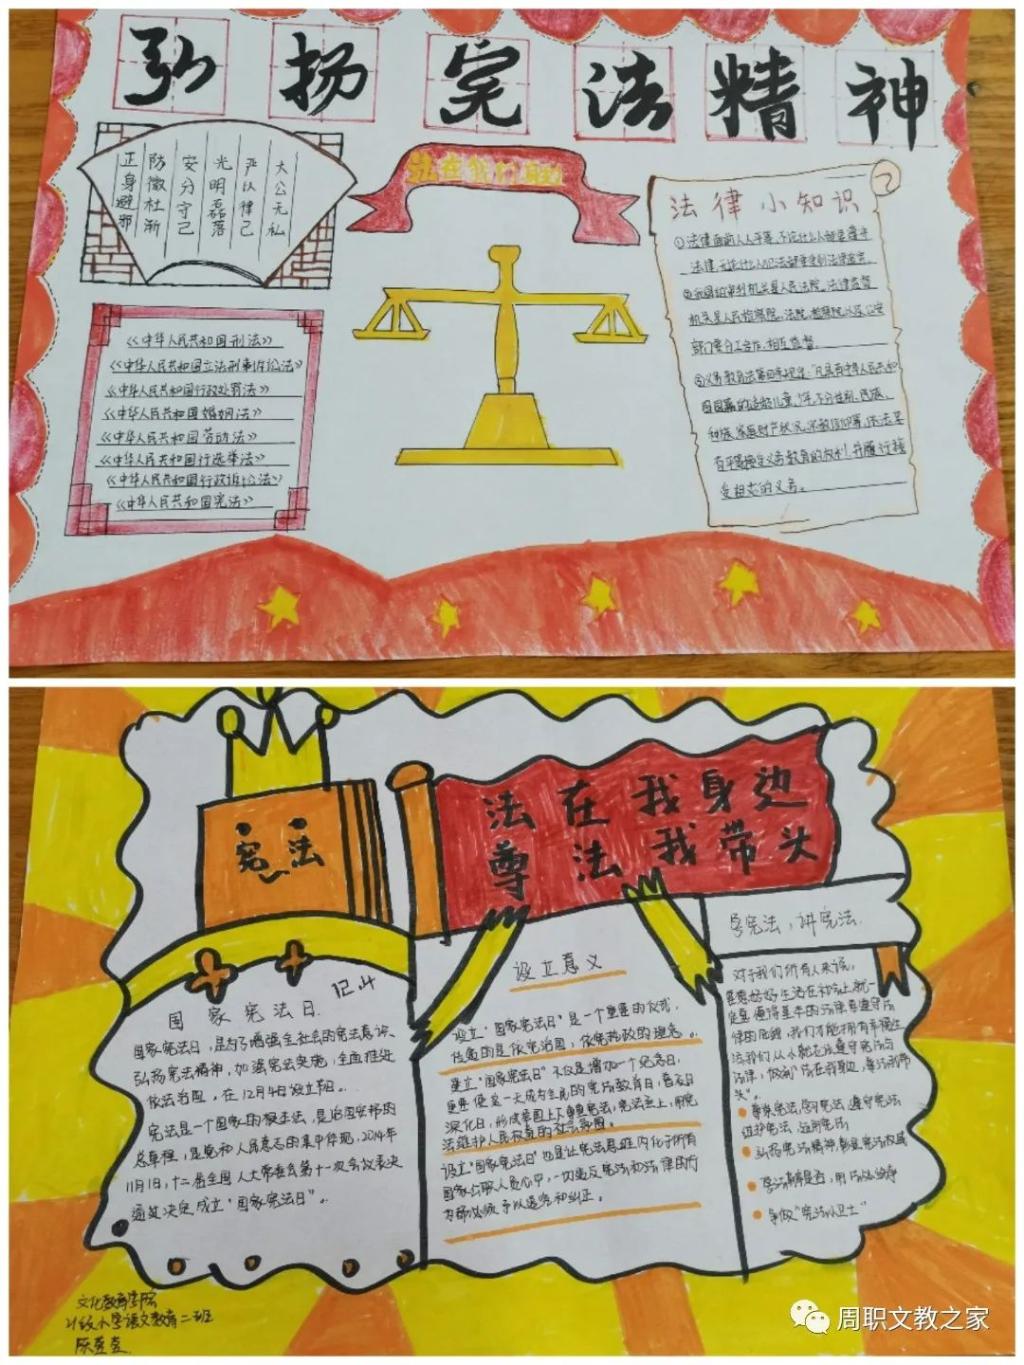 弘扬宪法精神
正身避邪
防微杜渐
安分守己
光明磊落
严以律己
大公无私
法在我们身边
《中华人民共和国刑法》
《中华人民共和国立法刑事诉讼法》
《中华人民共和国行政处罚法》
《中华人民共和国婚姻法》
《中华人民共和国劳动法》
《中华人民共和国行选举法》
《中华人民共和国行政诉讼法》
《中华人民共和国宪法》
法律小知识
①法律面前人人平等,不论什么人都要遵守
法律,无论什么人犯法都要受到法律追究。
②我国的审判机关是人民法院,法律监督
机关是人民检察院,法院,检察院以及公安
部门要分工合作,相互监督。
③义务教育法第四条规定:"凡具有中华人民共和
国国籍的适龄儿童,少年,不分性别,民族,
种族,家庭财产状况,宗教信仰等,依法享
有平等接受义务教育的权利,并履行接
受相应的义务。
宪法
法在我身边
尊法我带头
国家宪法日
12.4
国家宪法日,是为了增强全社会的宪法意识,
弘扬宪法精神,加强宪法实施,全面推进
依法治国。在12月4日设立节日。
宪法是一个国家的根本法,是治国安邦的
总章程,是党和人民意志的集中体现,2014年
11月1日,十二届全国人大常委会第十一次会议表决
通过决定成立"国家宪法日"。
设立意义
设立"国家宪法日"是一个重要的仪式,
传递的是依宪治国,依宪执政的理念。
设立"国家宪法日"不仅是增加一个纪念日,
更要使这一天成为全民的宪法教育日,普及日
深化日,形成举国上下尊重宪法,宪法至上,用宪
法维护人民权益的社会氛围。
设立"国家宪法日"也是让宪法思维内化于所有
国家公职人员心中,一切违反宪法和法律的行
为都必须予以追究和纠正。
学宪法,讲宪法
对于我们所有人来说,
要想好好生活在社会上就一
定要懂得基本的法律要遵守法
● 弘扬宪法精神,
● 争做"宪法小卫士"
文化教育学院
21级小学语文教育二班
周职文教之家